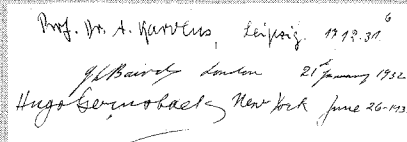 Prof. Dr. A. Karolus, Leipzig. 19.12.31
J L Baird London 21st January 1932
Hugo Gernsback New York June 26-193